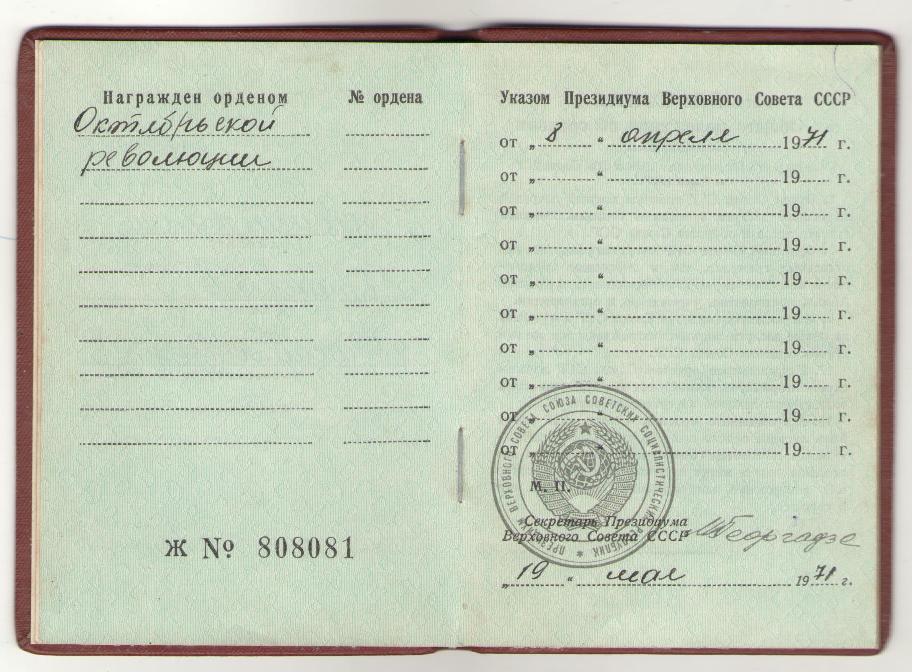 Награжден орденом
№ ордена
Октябрьской
революции
Ж № 808081
Указом Президиума Верховного Совета СССР
от „ 8 “ апреля 1971 г.
от „ “ 19 г.
от „ “ 19 г.
от „ “ 19 г.
от „ “ 19 г.
от „ “ 19 г.
от „ “ 19 г.
от „ “ 19 г.
от „ “ 19 г.
от „ “ 19 г.
ПРЕЗИДИУМ ВЕРХОВНОГО СОВЕТА СОЮЗА СОВЕТСКИХ СОЦИАЛИСТИЧЕСКИХ РЕСПУБЛИК
М. П.
Секретарь Президиума
Верховного Совета СССР МГеоргадзе
„ 19 “ мая 1971 г.